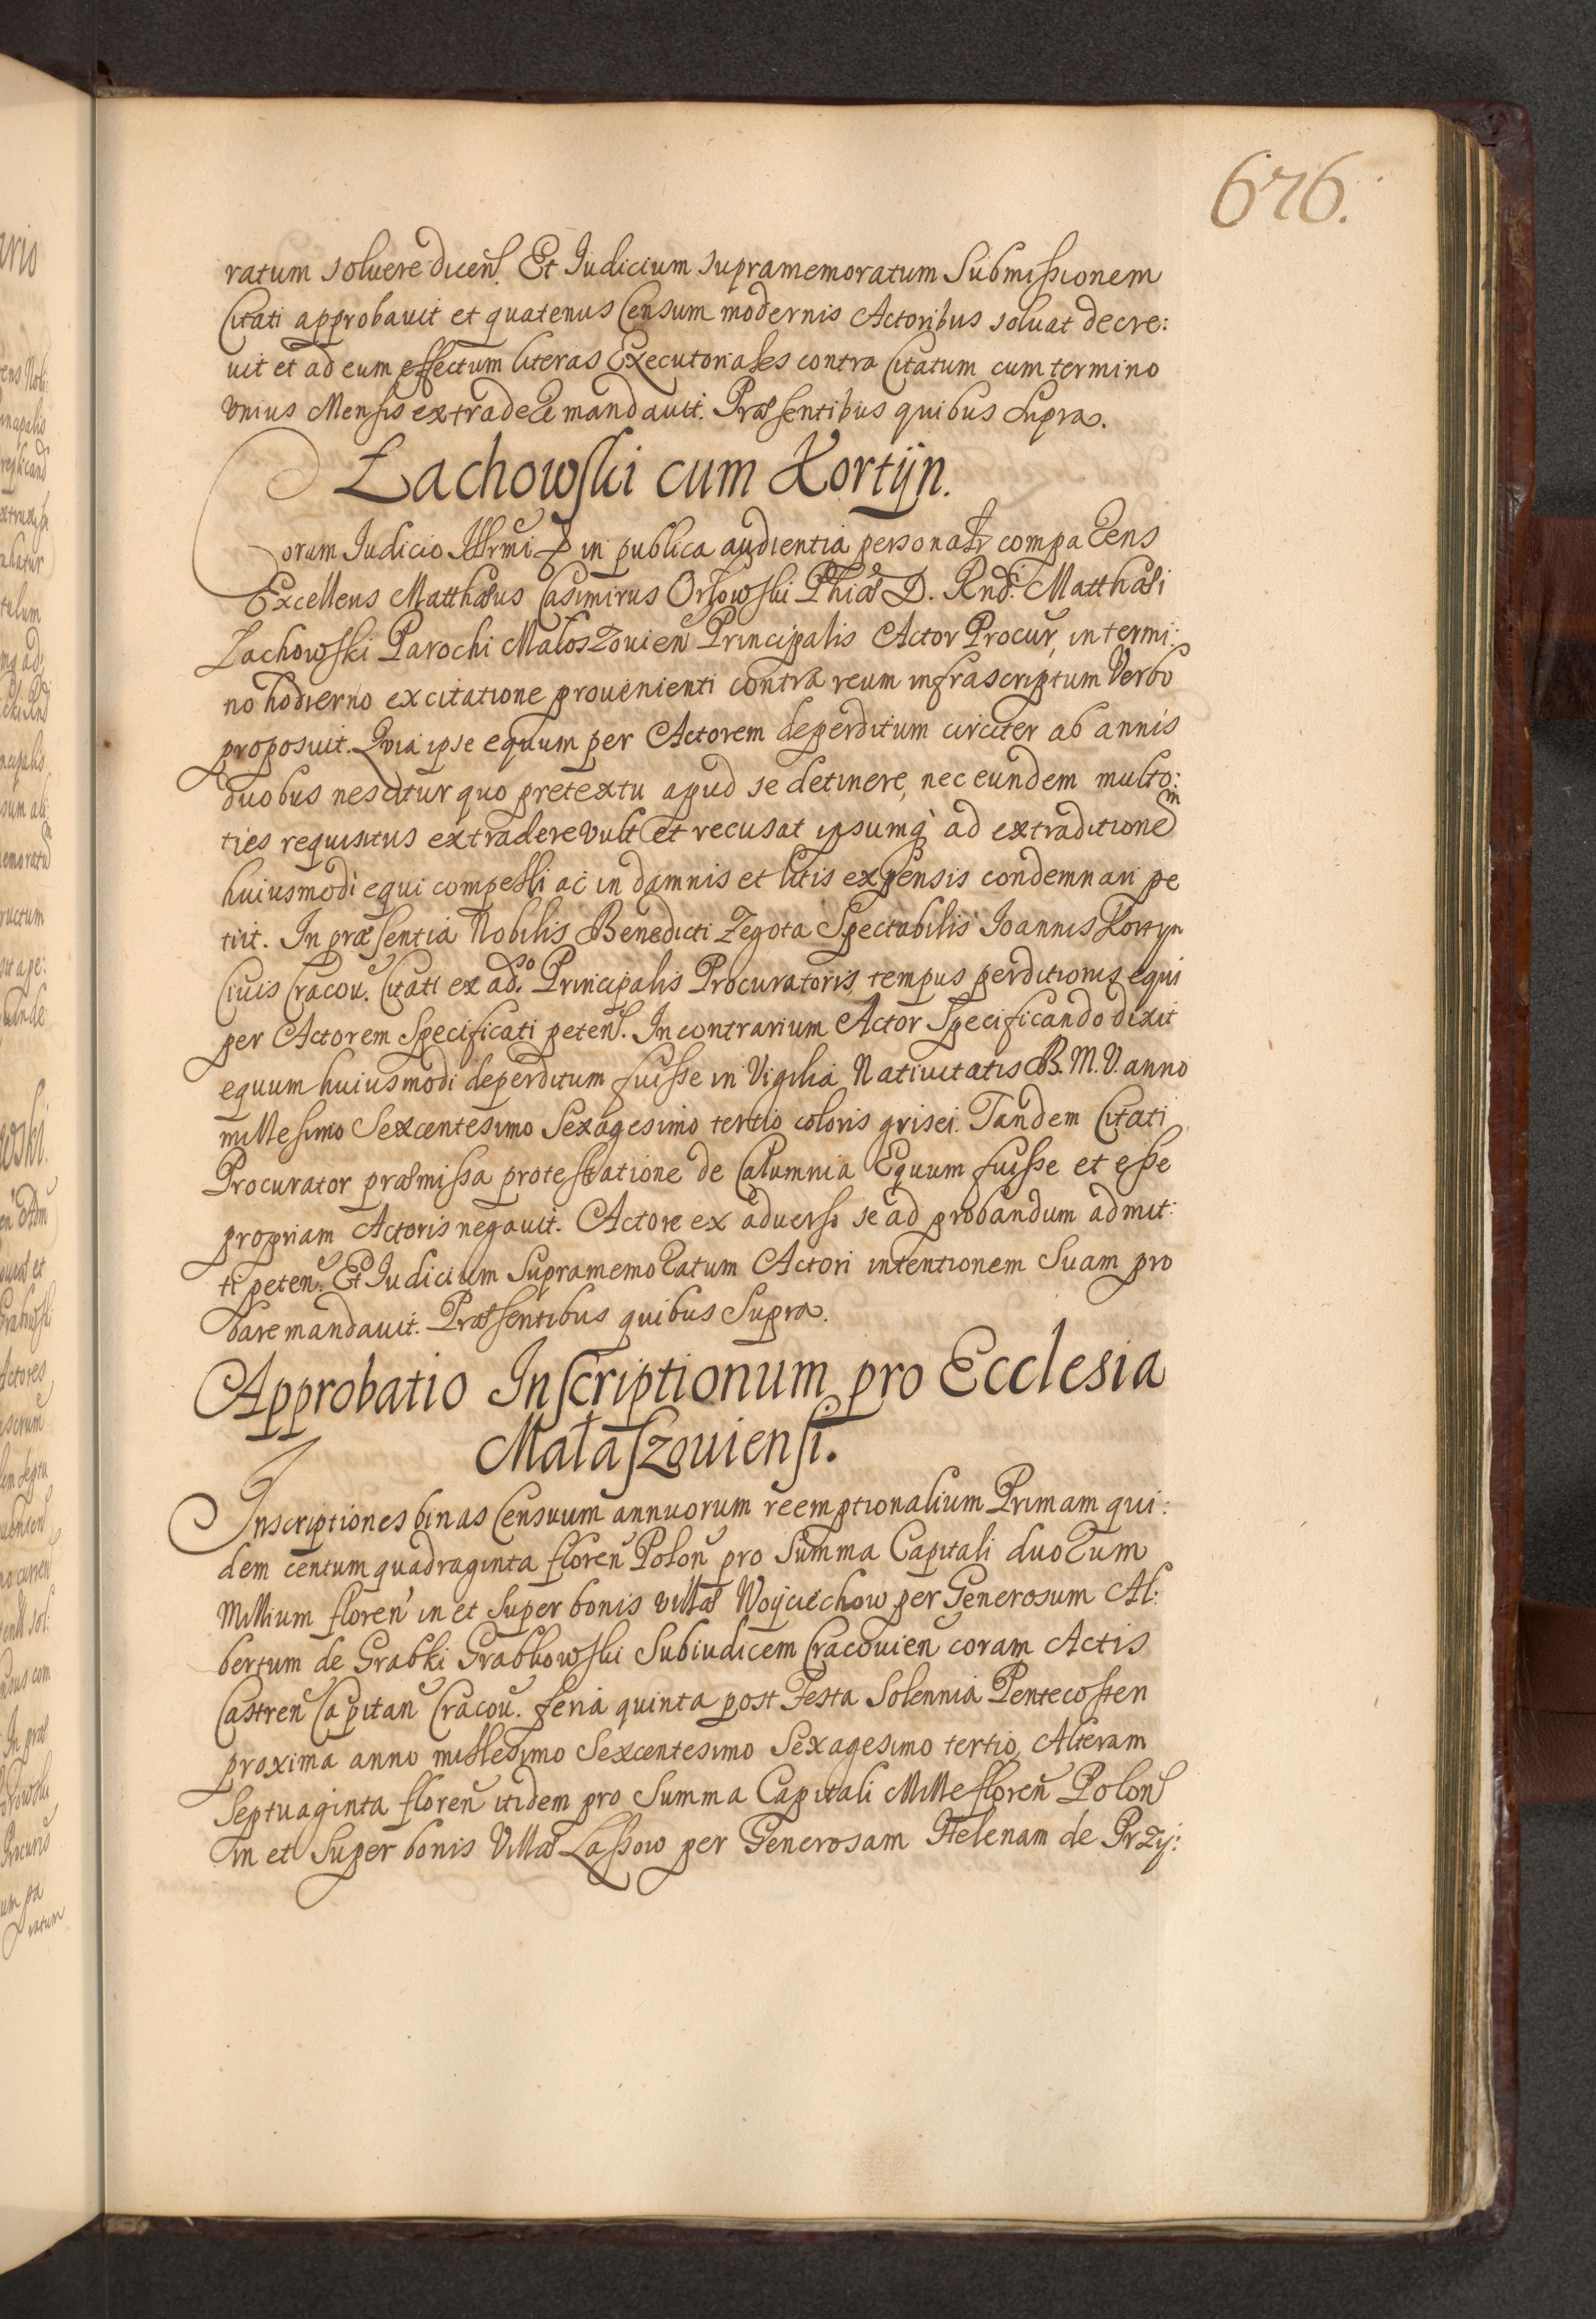 676.
ratum soluere dicen. Et Iudicium supramemoratum Submissionem
Citati approbauit et quatenus Censum modernis Actoribus soluat decre:
uit et ad eum effectum literas Executoriales contra Citatum cum termino
vnius Mensis extradere mandauit. Præsentibus quibus Supra.
Łachowski cum Kortÿn.
Coram Iudicio Illrmi in publica audientia personalr comparens
Excellens Matthæus Casimirus Orłowski Phiæ D. Rndi Matthæi
Łachowski Parochi Małoszouien Principalis Actor Procur, in termi:
no hodierno ex citatione prouenienti contra reum infrascriptum Verbo
proposuit. Qvia ipse equum per Actorem deperditum circiter ab annis
duobus nescitur quo pretextu apud se detinere, nec eundem multo:
ties requisitus extradere vult et recusat ipsumq ad extraditionem
huiusmodi equi compelli ac in damnis et litis expensis condemnari pe
tiit. In præsentia Nobilis Benedicti Zegota Spectabilis Ioannis Kortyn
Ciuis Cracou. Citati ex aduso Principalis Procuratoris, tempus perditionis equi
per Actorem Specificati peten. In contrarium Actor Specificando dixit
equum huiusmodi deperditum fuisse in Vigilia Natiuitatis B. M. V. anno
millesimo Sexcentesimo Sexagesimo tertio coloris grisei. Tandem Citati
Procurator præmissa protestatione de Calumnia Equum fuisse et esse
propriam Actoris negauit. Actore ex aduerso se ad probandum admit:
ti peten. Et Iudicium Supramemoratum Actori intentionem Suam pro
bare mandauit. Præsentibus quibus Supra.
Approbatio Inscriptionum pro Ecclesia
Małaszouiensi.
Inscriptiones binas Censuum annuorum reemptionalium Primam qui:
dem centum quadraginta floren Polon pro Summa Capitali duorum
Millium floren in et Super bonis villæ Woÿciechow per Generosum Al:
bertum de Grabki Grabkowski Subiudicem Cracouien coram Actis
Castren Capitan Cracou. feria quinta post Festa Solennia Pentecosten
proxima anno millesimo Sexcentesimo Sexagesimo tertio, Alteram
Septuaginta floren itidem pro Summa Capitali Mille floren Polon
in et Super bonis Villæ Lassow per Generosam Helenam de Przÿ: